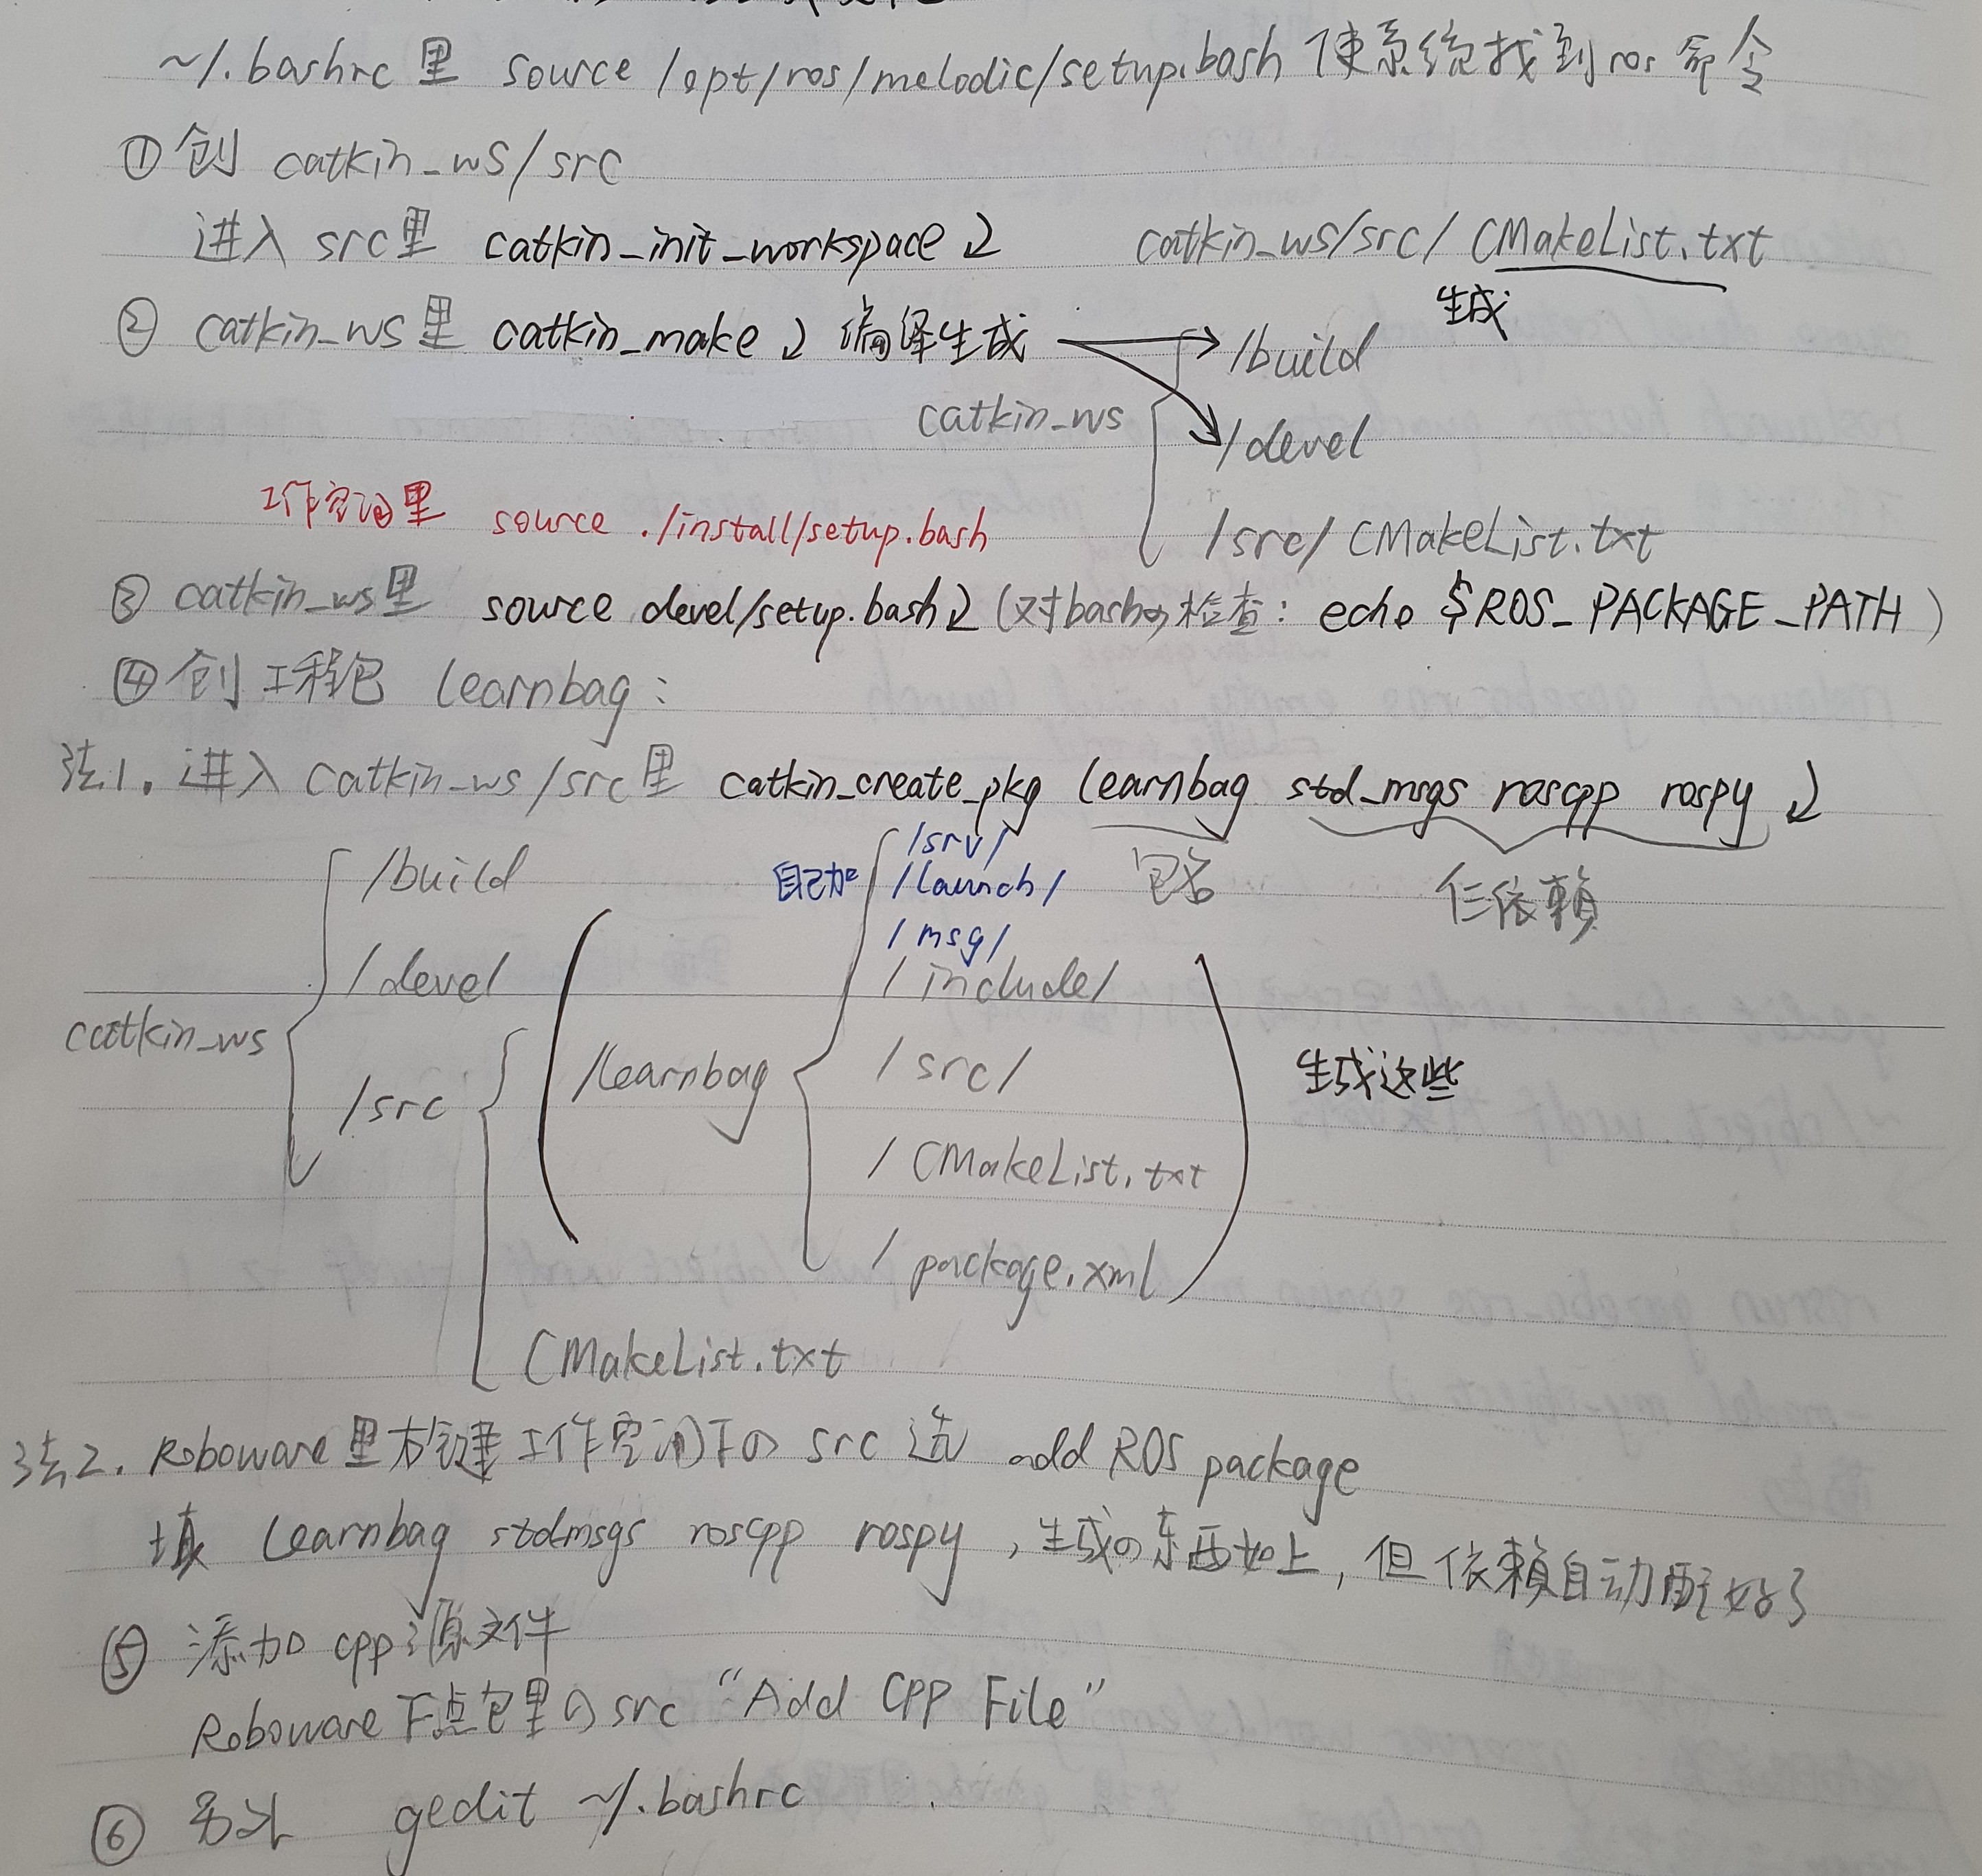 ~/.bashrc里 source /opt/ros/melodic/setup.bash 使系统找到ros命令
① 创 catkin_ws/src
进入src里 catkin_init_workspace↲ catkin_ws/src/CMakeList.txt
生成
② catkin_ws里 catkin_make↲ 编译生成 → /build
catkin_ws
/devel
工作空间里 source ./install/setup.bash
/src/CMakeList.txt
③ catkin_ws里 source devel/setup.bash↲ (对bashの检查: echo $ROS_PACKAGE_PATH)
④ 创工程包 learnbag:
法1. 进入catkin_ws/src里 catkin_create_pkg learnbag std_msgs roscpp rospy↲
包名
仨依賴
catkin_ws
/build
/devel
/src
/learnbag
自己加
/srv/
/launch/
/msg/
/include/
/src/
/CMakeList.txt
/package.xml
生成这些
CMakeList.txt
法2. Roboware里右键工作空间下の src 选 add ROS package
填 learnbag std_msgs roscpp rospy, 生成の东西如上, 但依賴自动配好了
⑤ 添加cpp源文件
Roboware下点包里のsrc "Add CPP File"
⑥ 另外 gedit ~/.bashrc